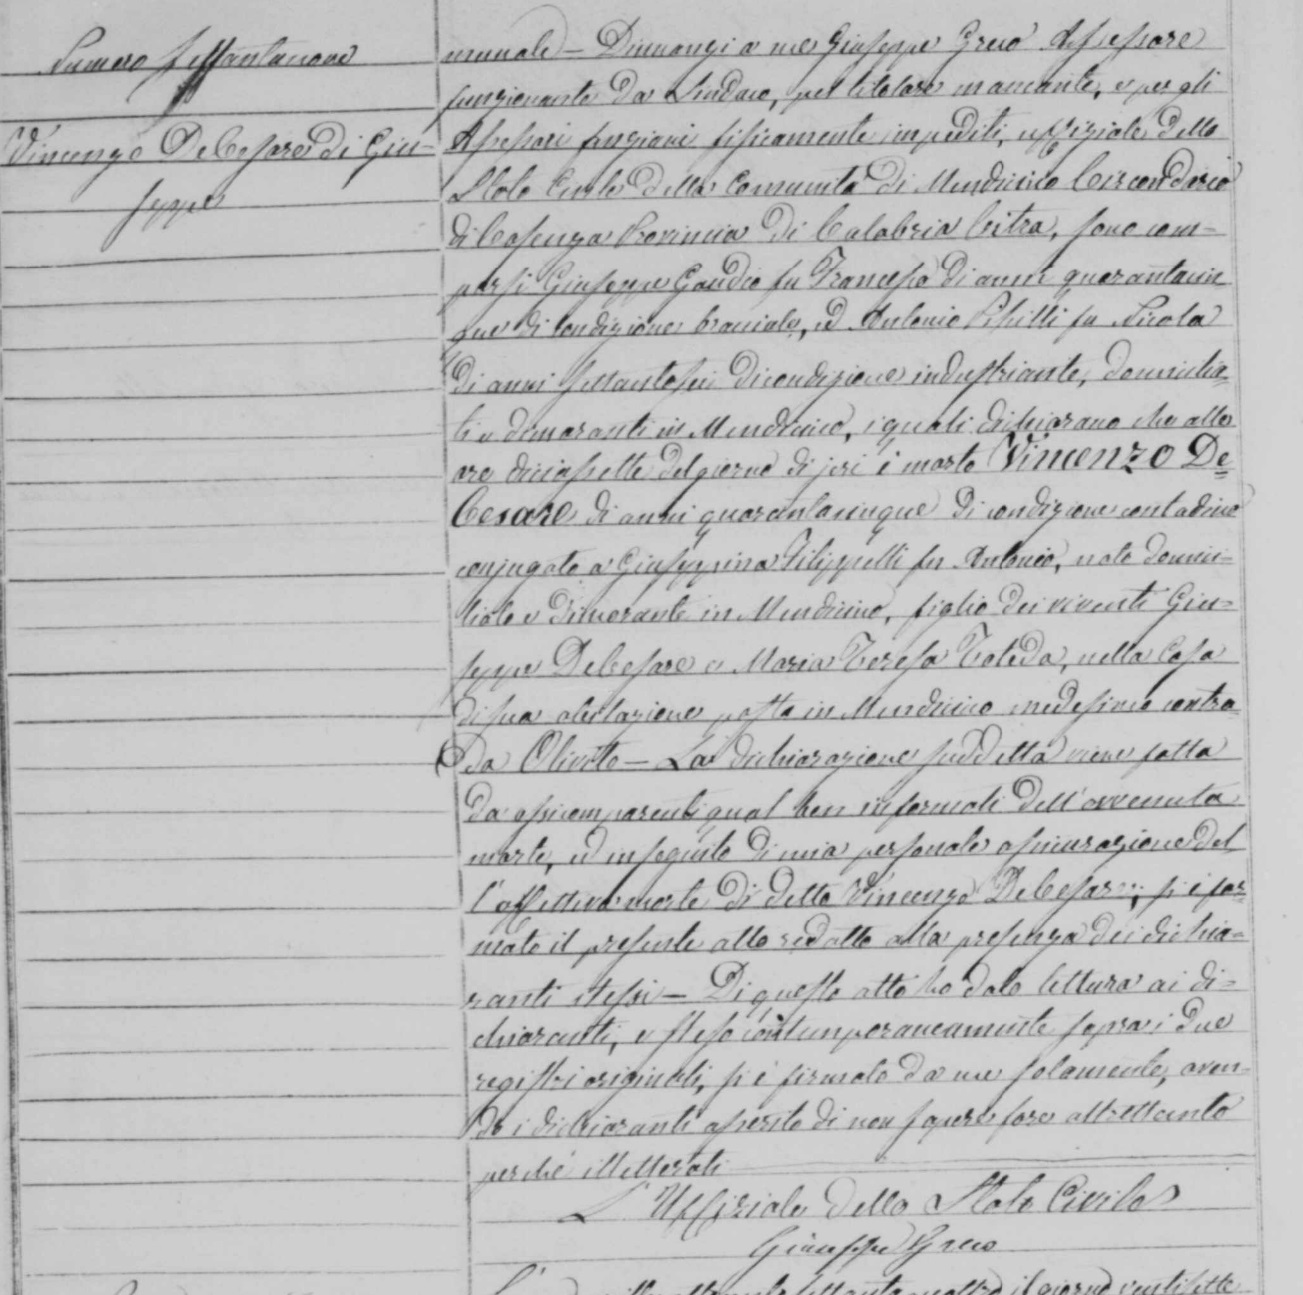 Numero Settantanove
Vincenzo DeCesare di Giu-
seppe
munale – Dinnanzi a me Giuseppe Greco Assessore
funzionante da Sindaco, pel titolare mancante, e per gli
Assessori anziani fisicamente impediti, uffiziale dello
Stato Civile della Comunità di Mendicino Circondario
di Cosenza Provincia di Calabria Citra, sono com-
parsi Giuseppe Gaudio fu Francesco di anni quarantacin
que di condizione bracciale, ed Antonio Pisilli fu Nicola
di anni settantasei di condizione industriante, domicilia=
ti e dimoranti in Mendicino, i quali dichiarano che alle
ore diciassette del giorno di jeri è morto Vincenzo De
Cesare di anni quarantacinque di condizione contadino
conjugato a Giuseppina Filippelli fu Antonio, nato domici-
liato e dimorante in Mendicino, figlio dei viventi Giu=
seppe DeCesare e Maria Teresa Toteda, nella Casa
di sua abitazione posta in Mendicino medesimo contra=
da Oliveto – La dichiarazione suddetta viene fatta
da essi comparenti qual ben informati dell'avvenuta
morte, ed in seguito di mia personale assicurazione del
l'effettiva morte di detto Vincenzo DeCesare, si è for=
mato il presente atto redatto alla presenza dei dichia=
ranti stessi – Di questo atto ho dato lettura ai di=
chiaranti, e steso contemporaneamente sopra i due
registri originali, si è firmato da me solamente, aven=
do i dichiaranti asserito di non sapere fare altrettanto
perché illetterati
L'Uffiziale dello Stato Civile
Giuseppe Greco
settanta quattro il giorno ventisette